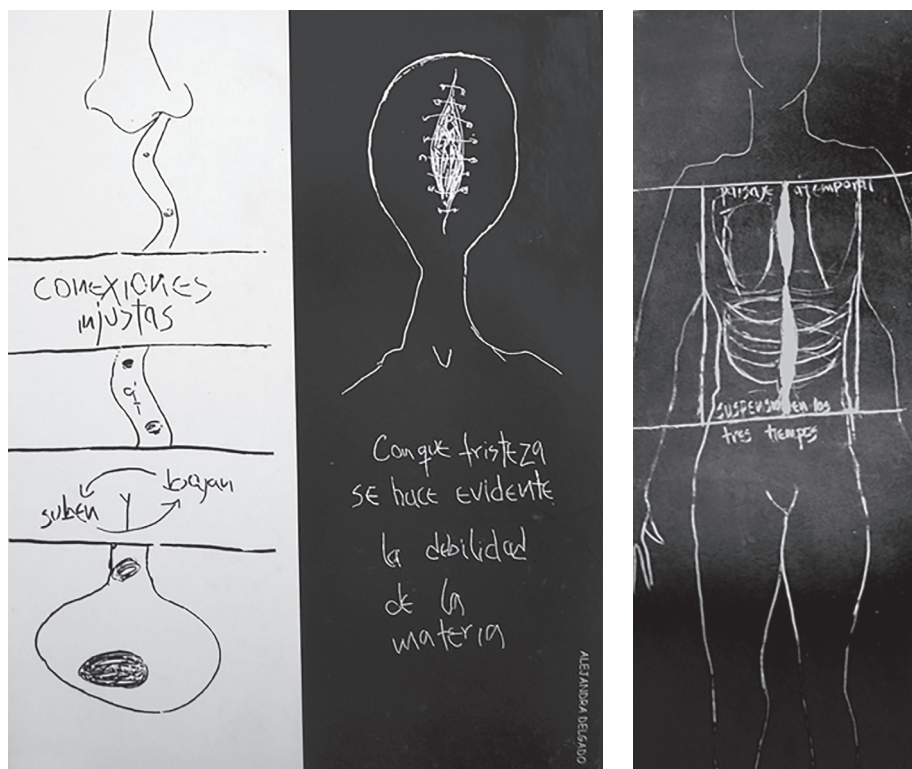 CONEXIONES
injustas
suben y bajan
Con que tristeza
SE hace EVIDENTE
la debilidad
de la
materia
ALEJANDRA DELGADO
paisaje atemporal
SUSPENSION EN los
tres tiempos